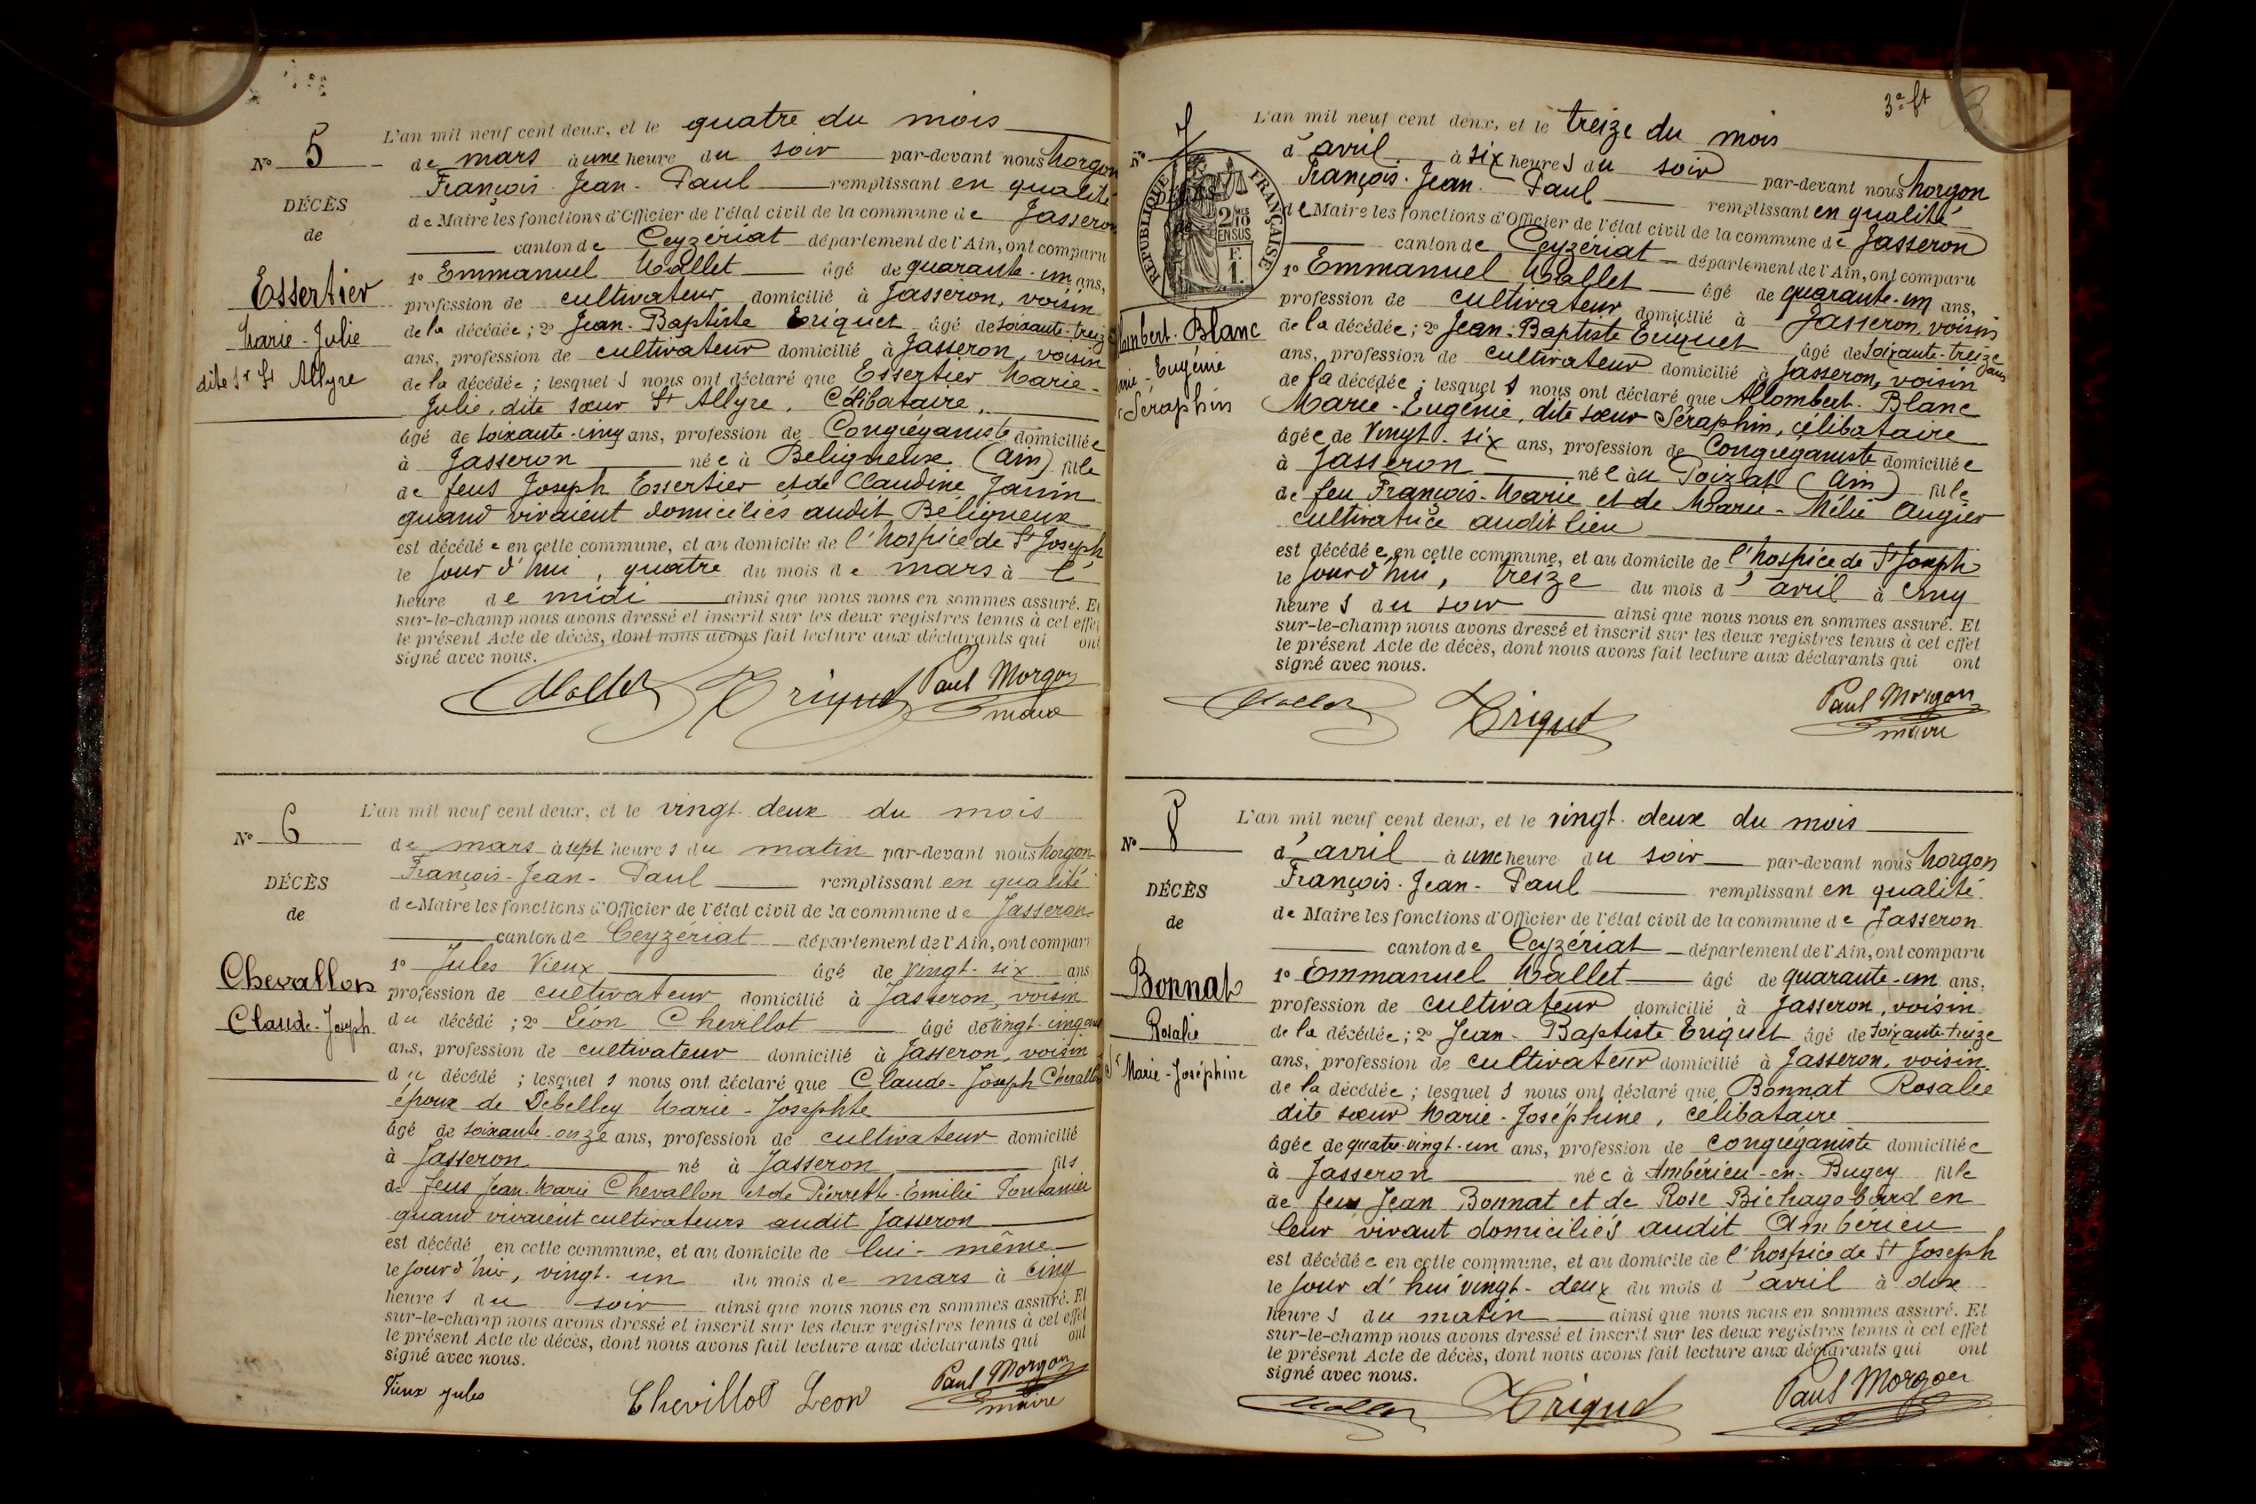 N° 5
DÉCÈS
de
Essertier
Marie-Julie
dite Sr St Allyre
L'an mil neuf cent deux, et le quatre du mois
de mars à une heure du soir par-devant nous Morgon
François-Jean-Paul remplissant en qualité
de Maire les fonctions d'Officier de l'état civil de la commune de Jasseron
canton de Ceyzériat département de l'Ain, ont comparu
1° Emmanuel Mallet âgé de quarante-un ans,
profession de cultivateur domicilié à Jasseron, voisin
de la décédée ; 2° Jean-Baptiste Triquet âgé de soixante-treize
ans, profession de cultivateur domicilié à Jasseron, voisin
de la décédée ; lesquels nous ont déclaré que Essertier Marie-
Julie, dite sœur St Allyre, Célibataire,
âgé de soixante-cinq ans, profession de Congréganiste domiciliée
à Jasseron née à Béligneux (Ain) fille
de feus Joseph Essertier et de Claudine Janin
quand vivaient domiciliés audit Béligneux
est décédée en cette commune, et au domicile de l'hospice de St Joseph
le jour d'hui, quatre du mois de mars à l'
heure de midi ainsi que nous nous en sommes assuré. Et
sur-le-champ nous avons dressé et inscrit sur les deux registres tenus à cet effet
le présent Acte de décès, dont nous avons fait lecture aux déclarants qui ont
signé avec nous.
Mallet Triquet Paul Morgon
maire
N° 6
DÉCÈS
de
Chevallon
Claude-Joseph
L'an mil neuf cent deux, et le vingt-deux du mois
de mars à sept heures du matin par-devant nous Morgon
François-Jean-Paul remplissant en qualité
de Maire les fonctions d'Officier de l'état civil de la commune de Jasseron
canton de Ceyzériat département de l'Ain, ont comparu
1° Jules Vieux âgé de vingt-six ans
profession de cultivateur domicilié à Jasseron, voisin
du décédé ; 2° Léon Chevillot âgé de vingt-cinq ans
ans, profession de cultivateur domicilié à Jasseron, voisin
du décédé ; lesquels nous ont déclaré que Claude-Joseph Chevallon
époux de Debelley Marie-Josephte
âgé de soixante-onze ans, profession de cultivateur domicilié
à Jasseron né à Jasseron fils
de feus Jean-Marie Chevallon et de Pierrette-Emilie Fontanier
quand vivaient cultivateurs audit Jasseron
est décédé en cette commune, et au domicile de lui-même
le jour d'hier, vingt-un du mois de mars à cinq
heures du soir ainsi que nous nous en sommes assuré. Et
sur-le-champ nous avons dressé et inscrit sur les deux registres tenus à cet effet
le présent Acte de décès, dont nous avons fait lecture aux déclarants qui ont
signé avec nous.
Vieux jules Chevillot Leon Paul Morgon
maire
3e ft
N° 7
RÉPUBLIQUE FRANÇAISE
2/10 EN SUS
F. 1.
DÉCÈS
Allombert-Blanc
Marie-Eugénie
Sr Séraphin
L'an mil neuf cent deux, et le treize du mois
d'avril à six heures du soir par-devant nous Morgon
François-Jean-Paul remplissant en qualité
de Maire les fonctions d'Officier de l'état civil de la commune de Jasseron
canton de Ceyzériat département de l'Ain, ont comparu
1° Emmanuel Mallet âgé de quarante-un ans,
profession de cultivateur domicilié à Jasseron, voisin
de la décédée ; 2° Jean-Baptiste Triquet âgé de soixante-treize ans
ans, profession de cultivateur domicilié à Jasseron, voisin
de la décédée ; lesquels nous ont déclaré que Allombert-Blanc
Marie-Eugénie, dite sœur Séraphin, célibataire
âgée de vingt-six ans, profession de Congréganiste domiciliée
à Jasseron née au Poizat (Ain) fille
de feu François-Marie et de Marie-Mélie Augier
cultivatrice audit lieu
est décédée en cette commune, et au domicile de l'hospice de St Joseph
le jourd'hui, treize du mois d'avril à cinq
heures du soir ainsi que nous nous en sommes assuré. Et
sur-le-champ nous avons dressé et inscrit sur les deux registres tenus à cet effet
le présent Acte de décès, dont nous avons fait lecture aux déclarants qui ont
signé avec nous.
Mallet Triquet Paul Morgon
maire
N° 8
DÉCÈS
de
Bonnat
Rosalie
Sr Marie-Joséphine
L'an mil neuf cent deux, et le vingt-deux du mois
d'avril à une heure du soir par-devant nous Morgon
François-Jean-Paul remplissant en qualité
de Maire les fonctions d'Officier de l'état civil de la commune de Jasseron
canton de Ceyzériat département de l'Ain, ont comparu
1° Emmanuel Mallet âgé de quarante-un ans,
profession de cultivateur domicilié à Jasseron, voisin
de la décédée ; 2° Jean-Baptiste Triquet âgé de soixante-treize
ans, profession de cultivateur domicilié à Jasseron, voisin
de la décédée ; lesquels nous ont déclaré que Bonnat Rosalie
dite sœur Marie-Joséphine, célibataire
âgée de quatre-vingt-un ans, profession de congréganiste domiciliée
à Jasseron née à Ambérieu-en-Bugey fille
de feus Jean Bonnat et de Rose Bichagobard en
leur vivant domiciliés audit Ambérieu
est décédée en cette commune, et au domicile de l'hospice de St Joseph
le jour d'hui vingt-deux du mois d'avril à dix
heures du matin ainsi que nous nous en sommes assuré. Et
sur-le-champ nous avons dressé et inscrit sur les deux registres tenus à cet effet
le présent Acte de décès, dont nous avons fait lecture aux déclarants qui ont
signé avec nous.
Mallet Triquet Paul Morgon